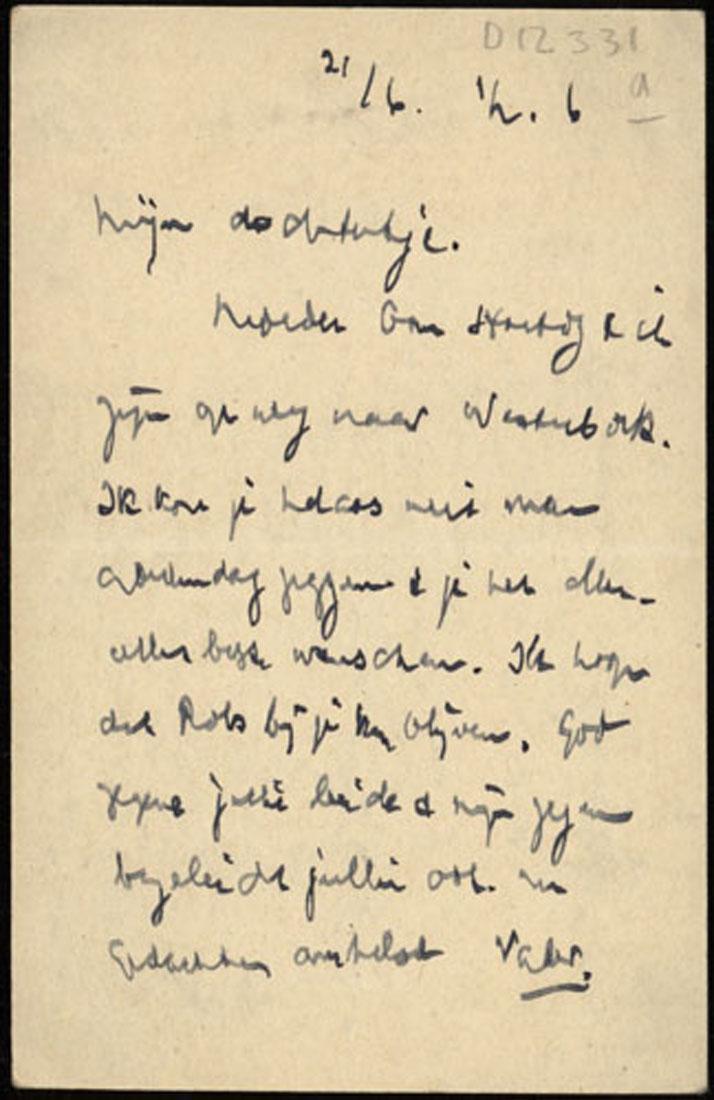 D12331
a
21/6. ½. 6
Mijn dochtertje.
Moeder Oom Hartog & ik
zijn op weg naar Westerbork.
Ik kon je helaas niet meer
goedendag zeggen & je het aller-
allerbeste wenschen. Ik hoop
dat Rob bij je kan blijven. God
zegene jullie beide & mijn zegen
begeleidt jullie ook. In
gedachten omhelsd Vader.